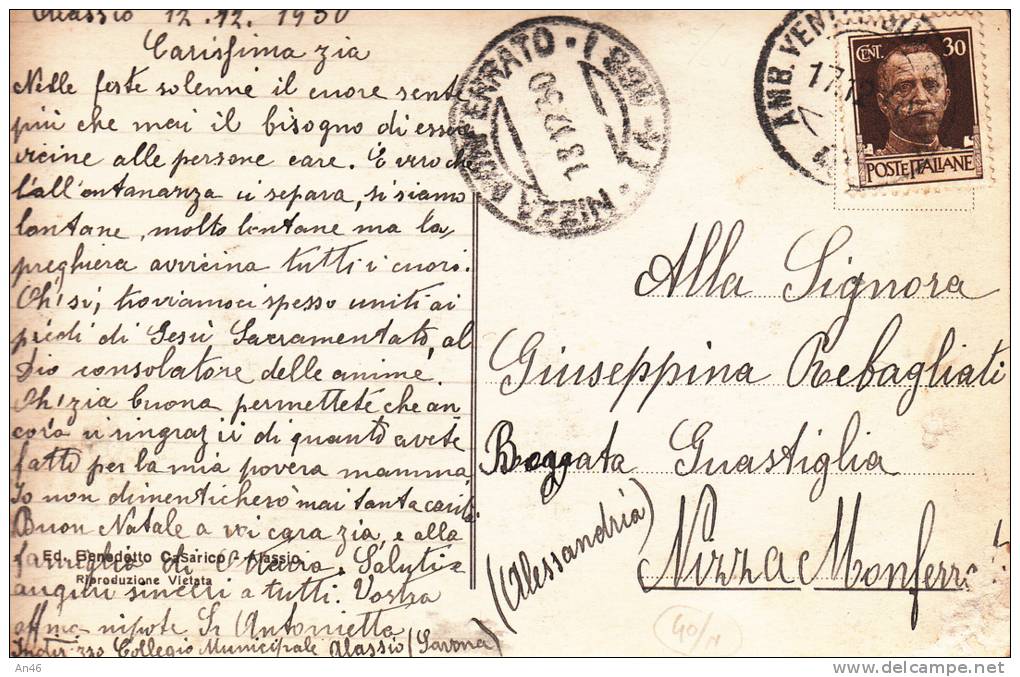 Alassio 12.12.1930
Carissima zia
Nelle feste solenne il cuore sente
più che mai il bisogno di essere
vicine alle persone care. È vero che
l'all'ontananza ci separa, si siamo
lontane, molto lontane ma la
preghiera avvicina tutti i cuori.
Oh! sì, troviamoci spesso uniti ai
piedi di Gesù Sacramentato, al
Dio consolatore delle anime.
Oh! zia buona permettete che an
cora vi ringrazii di quanto avete
fatto per la mia povera mamma
Io non dimenticherò mai tanta carità.
Buon Natale a voi cara zia, e alla
famiglia di Saluti =
auguri sinceri a tutti. Vostra
affma nipote Sr Antonietta
Indirizzo Collegio Municipale Alassio (Savona)
Ed. Benedetto Casarico - Alassio
Riproduzione Vietata
NIZZA MONFERRATO
18.12.30
AMB. VENTIM
17.12
CENT. 30
POSTE ITALIANE
Alla Signora
Giuseppina Rebagliati
Boggata Guastiglia
(Alessandria)
Nizza Monferr
40/
An46
www.delcampe.net